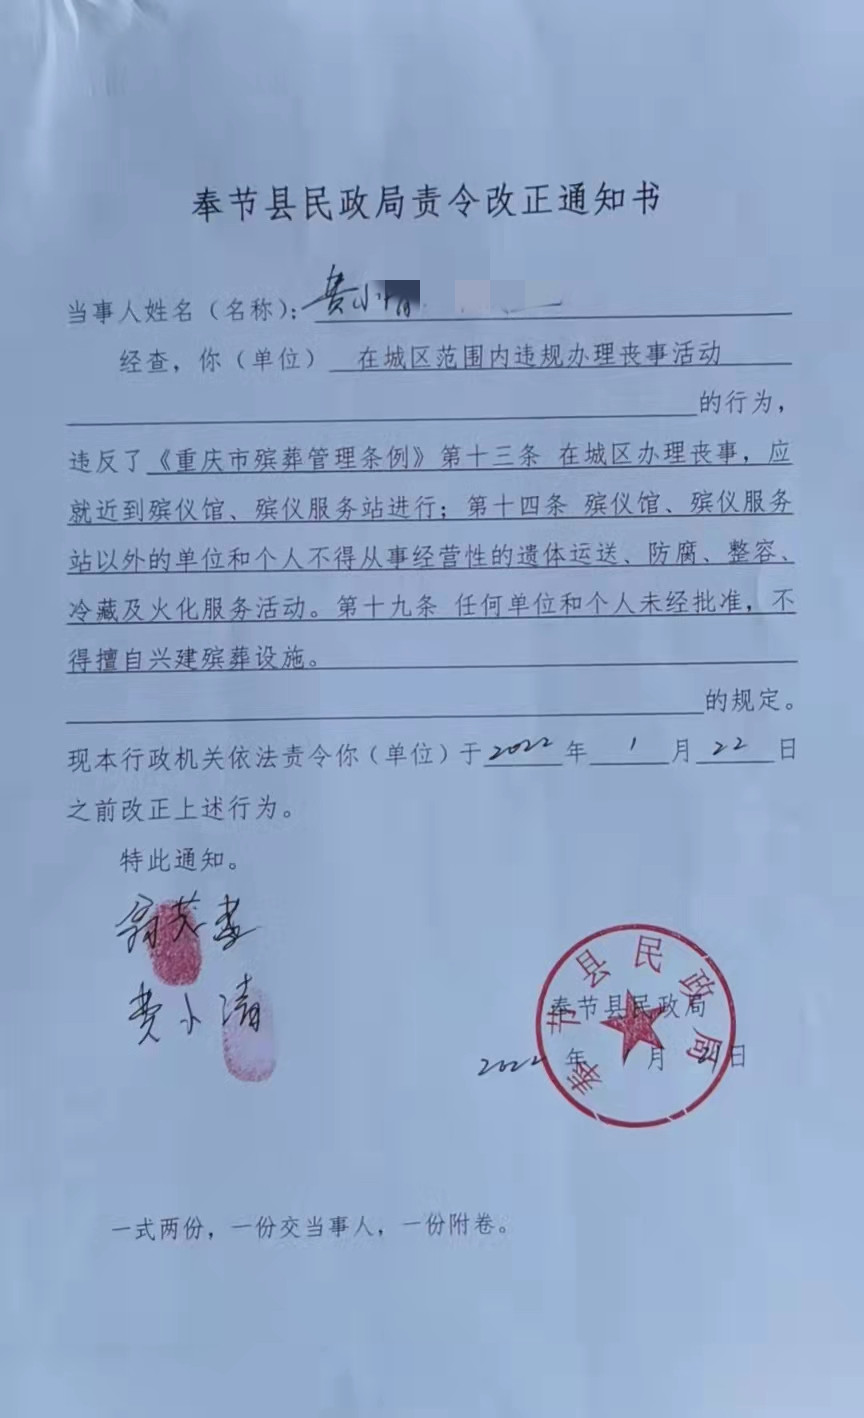 奉节县民政局责令改正通知书
当事人姓名（名称）：费小清
经查，你（单位） 在城区范围内违规办理丧事活动
的行为，
违反了《重庆市殡葬管理条例》第十三条 在城区办理丧事，应
就近到殡仪馆、殡仪服务站进行；第十四条 殡仪馆、殡仪服务
站以外的单位和个人不得从事经营性的遗体运送、防腐、整容、
冷藏及火化服务活动。第十九条 任何单位和个人未经批准，不
得擅自兴建殡葬设施。
的规定。
现本行政机关依法责令你（单位）于2022年1月22日
之前改正上述行为。
特此通知。
费小清
奉节县民政局
奉节县民政局
2022年1月21日
一式两份，一份交当事人，一份附卷。